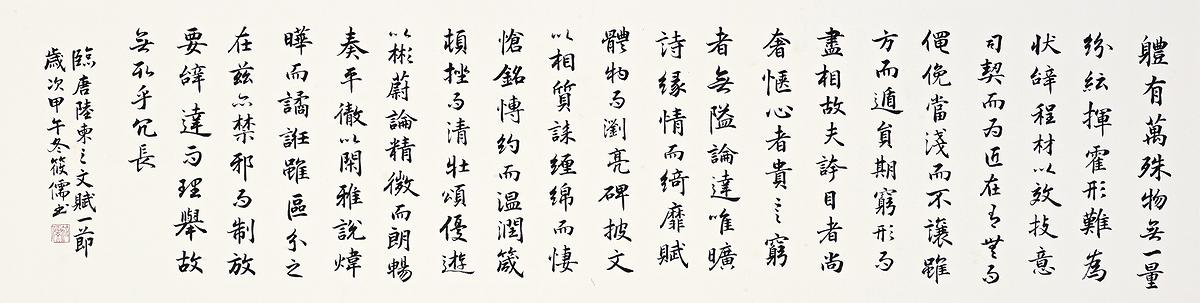 軆有萬殊物無一量
紛紜揮霍形難為
状辝程材以效技意
司契而為匠在有無而
僶俛當淺而不讓雖
方而遁員期窮形而
盡相故夫誇目者尚
奢愜心者貴之窮
者無隘論達唯曠
詩緣情而綺靡賦
體物而瀏亮碑披文
以相質誄纏綿而悽
愴銘博約而温潤箴
頓挫而清壮頌優遊
以彬蔚論精微而朗暢
奏平徹以閑雅說煒
曄而譎誑雖區分之
在兹亦禁邪而制放
要辝達而理舉故
無取乎冗長
臨唐陸柬之文賦一節
歲次甲午冬筱儒書